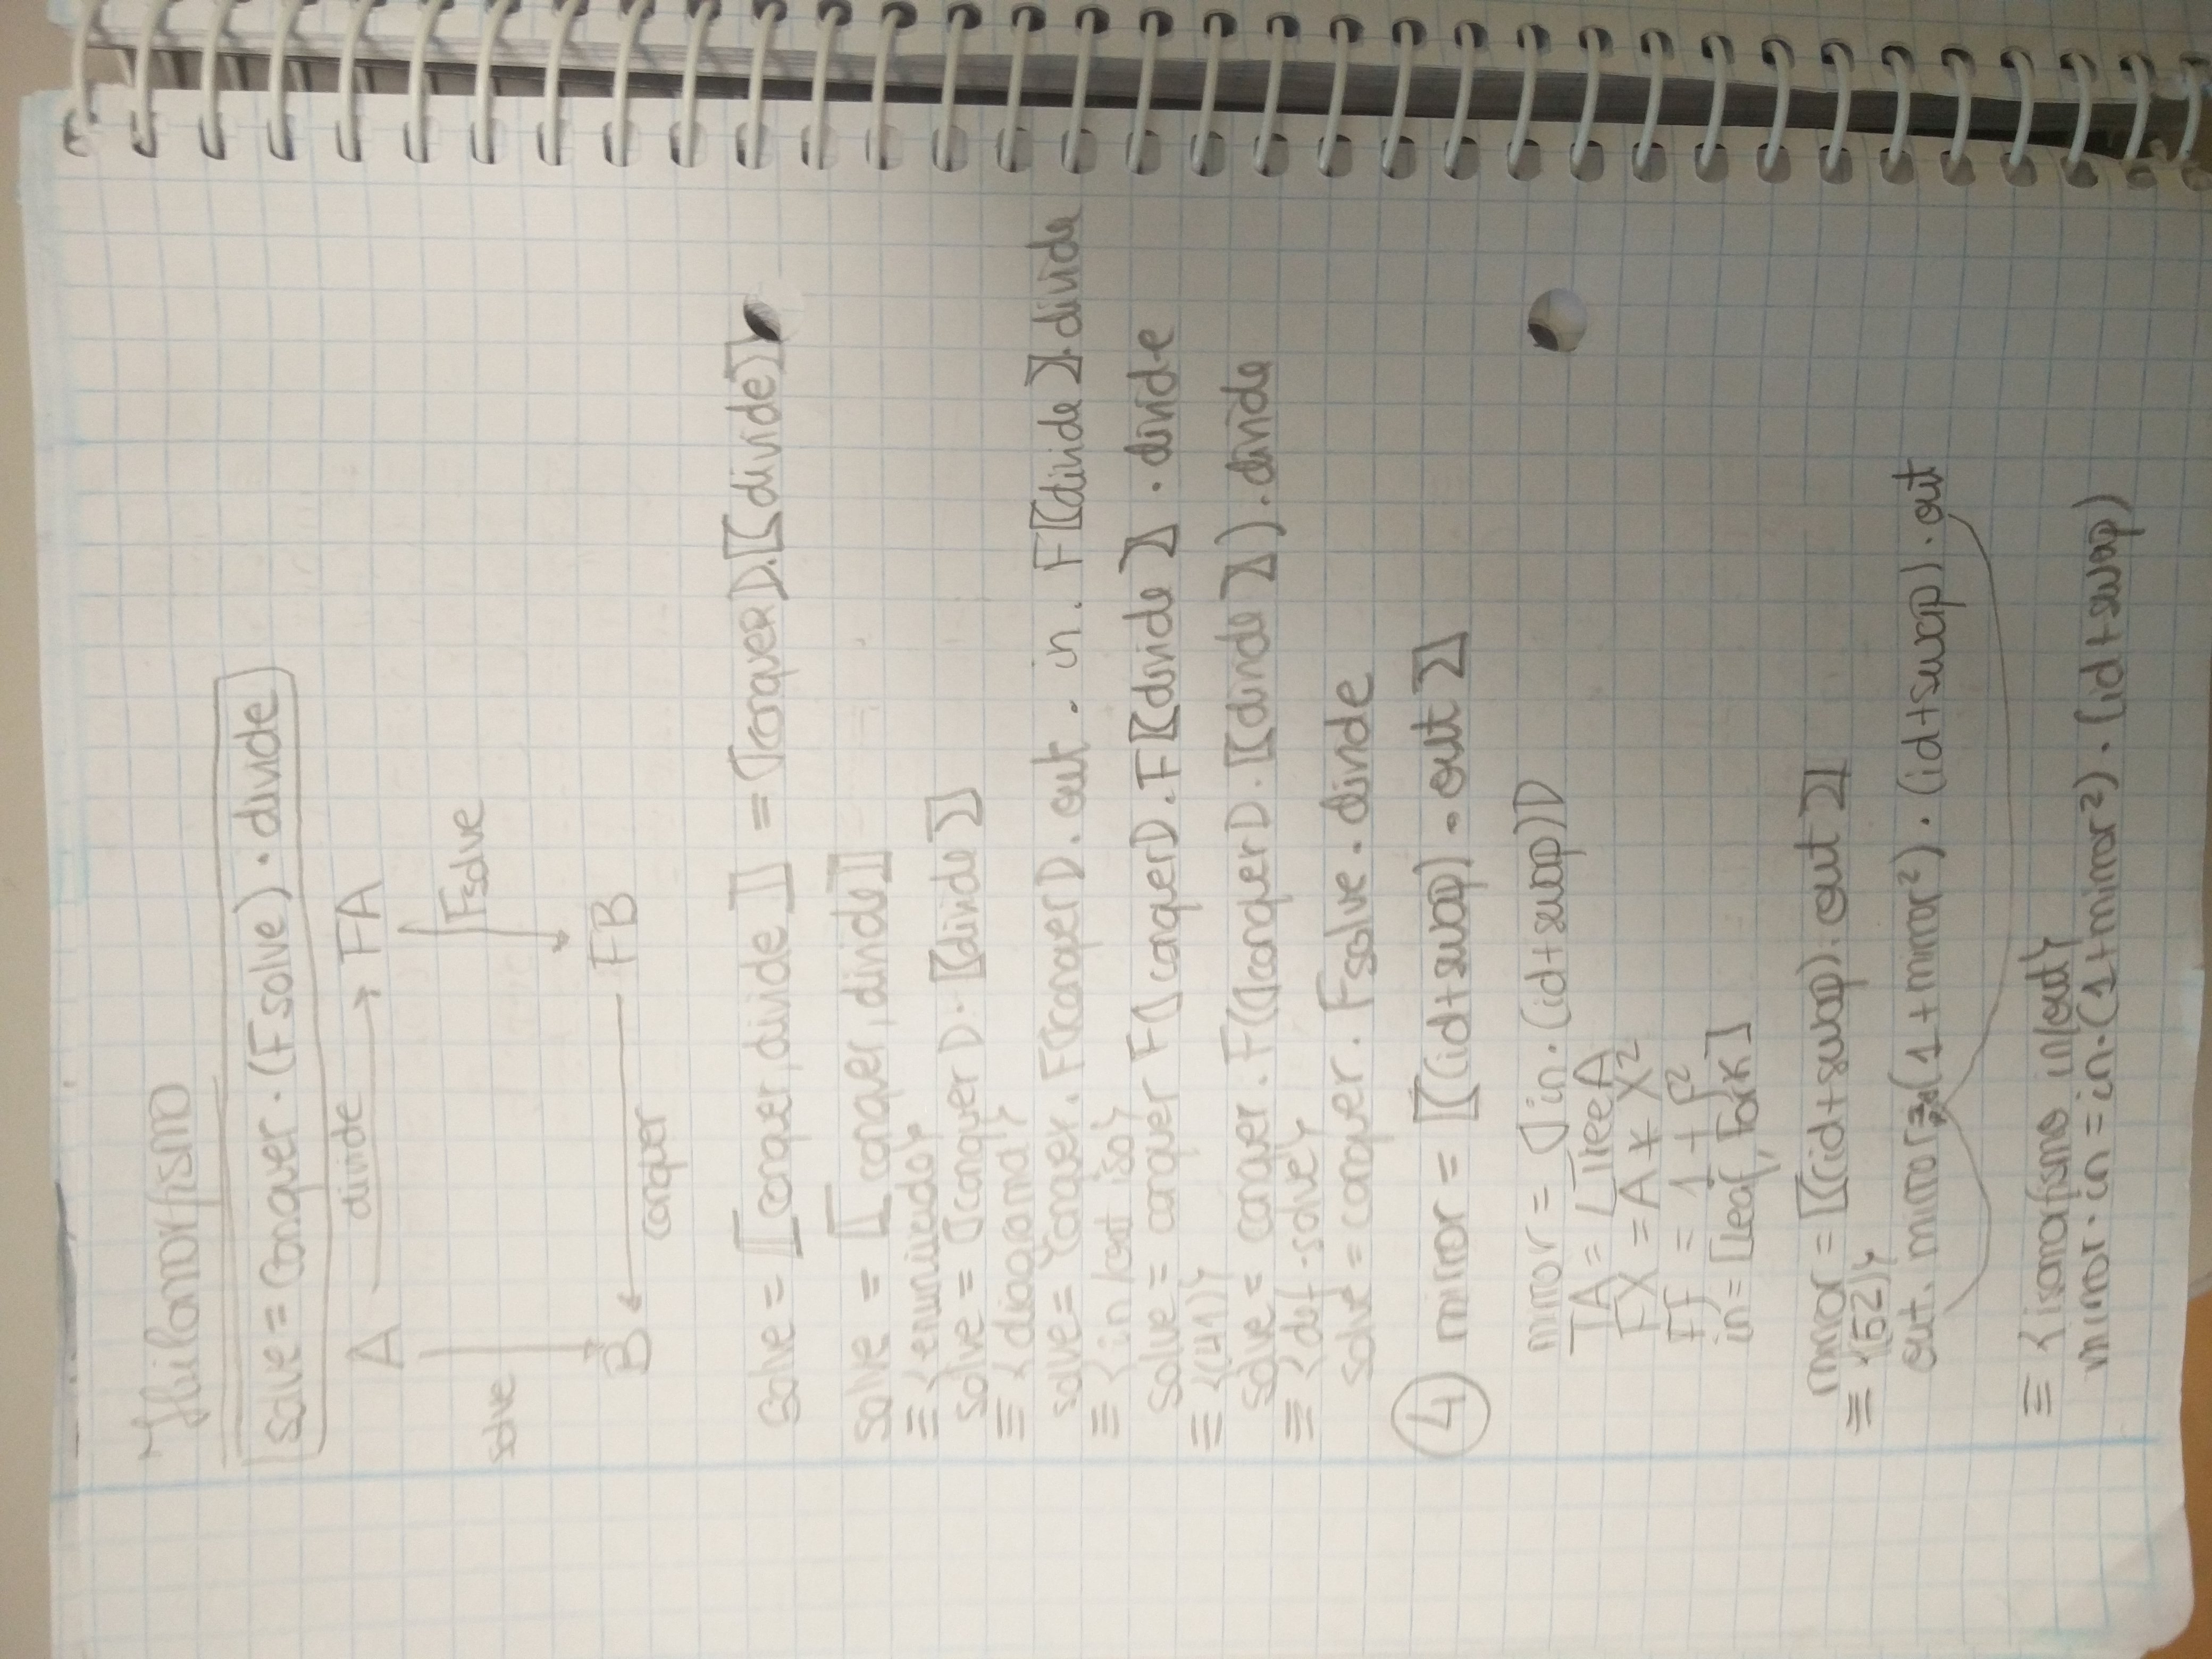 Hilomorfismo
solve = conquer · (F solve) · divide
A divide FA
solve Fsolve
B conquer FB
solve = ⟦conquer, divide⟧ = ⦇conquer⦈.⟦(divide)⟧
solve = ⟦conquer, divide⟧
≡ {enunciado}
solve = ⦇conquer⦈ · ⟦(divide)⟧
≡ {diagrama}
solve = conquer . F⦇conquer⦈ . out . in . F⟦(divide)⟧.divide
≡ {in/out iso}
solve = conquer F⦇conquer⦈ . F⟦(divide)⟧ · divide
≡ {(41)}
solve = conquer . F(⦇conquer⦈ . ⟦(divide)⟧) . divide
≡ {def-solve}
solve = conquer . Fsolve . divide
④ mirror = ⟦((id+swap) · out)⟧
mirror = ⦇in · (id+swap)⦈
TA = LTree A
FX = A + X²
Ff = 1 + f²
in = [Leaf, Fork]
mirror = ⟦((id+swap) . out)⟧
≡ {(52)}
out . mirror = (1 + mirror²) · (id+swap) · out
≡ {isomorfismo in/out}
mirror · in = in · (1+mirror²) · (id+swap)